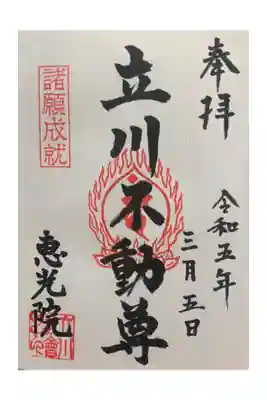 奉拝
令和五年
三月五日
立川不動尊
諸願成就
惠光院